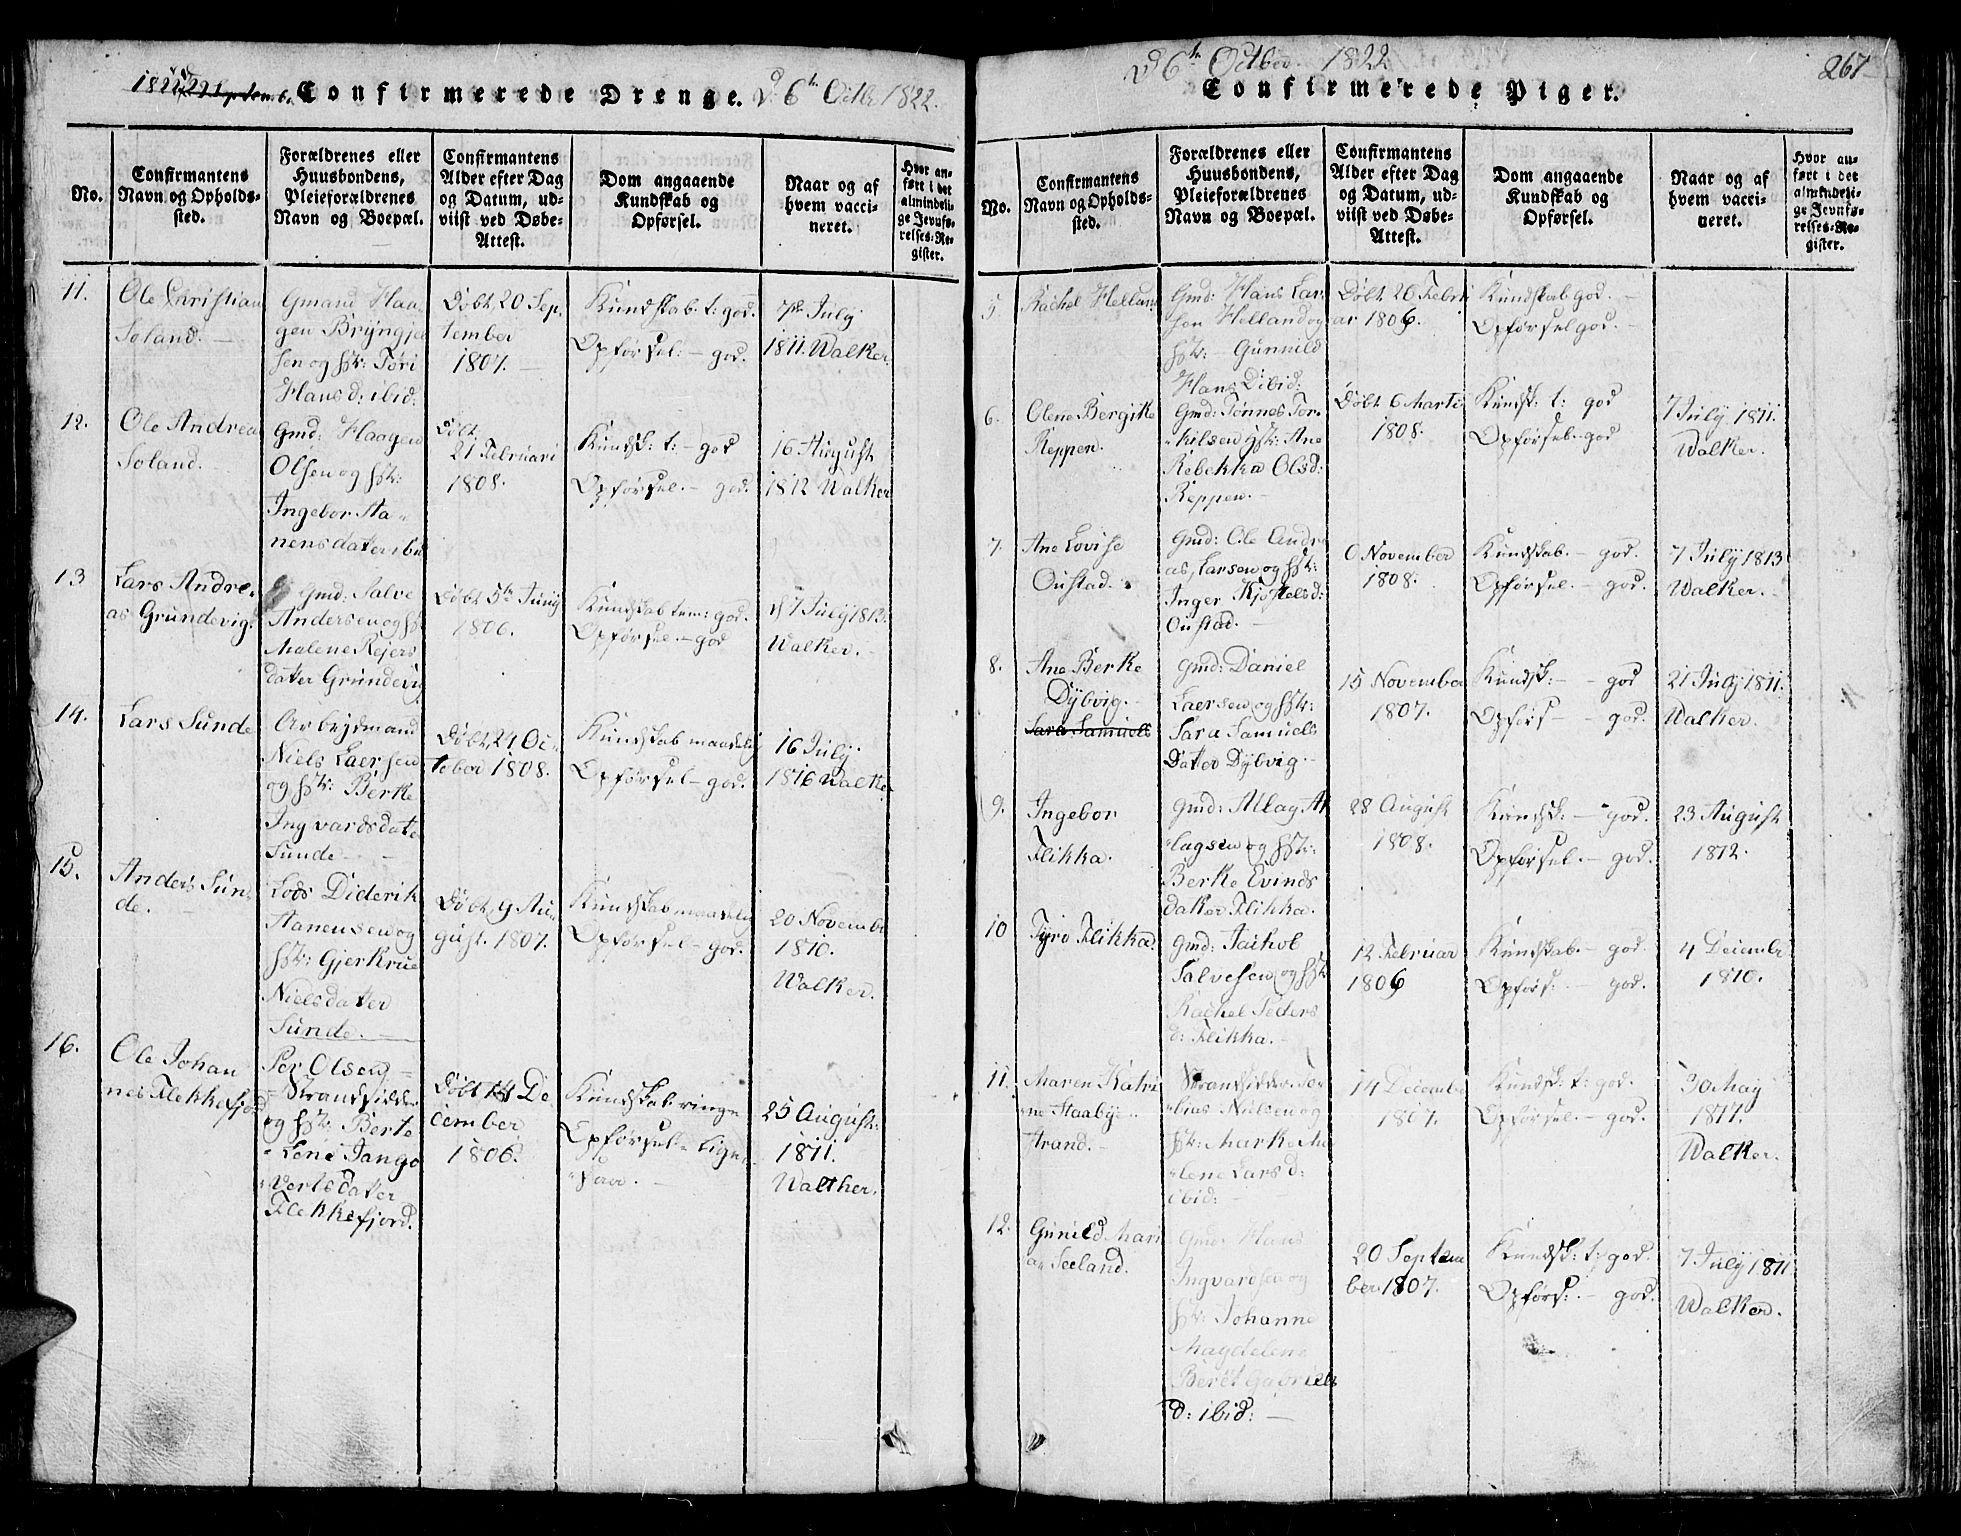 1822
Confirmerede Drenge. d: 6te Octbr 1822.
No.
Confirmantens
Navn og Opholds-
sted.
Forældrenes eller
Huusbondens,
Pleieforældrenes
Navn og Boepæl.
Confirmantens
Alder efter Dag
og Datum, ud-
viist ved Døbe-
Attest.
Dom angaaende
Kundskab og
Opførsel.
Naar og af
hvem vacci-
neret.
Hvor an-
ført i det
almindeli-
ge Jevnfø-
relses-Re-
gister.
11.
Ole Christian
Soland. -
Gmand Haa
gen Bryngje
sen og hstr: Tøri
Hans d: ibid:
Døbt 20 Sep
tember
1807. -
Kundskab. t: god.
Opførsel: - god.
7de July
1811. Walker
12.
Ole Andrea
Soland. -
Gmd: Haagen
Olsen og hstr:
Ingebor Sta
nensdater ibi
Døbt
21 Februari
1808.
Kundsk: t: - god
Opførsel. - god.
16 August
1812 Walker
13
Lars Andre
as Grundevig.
Gmd: Salve
Andersen og hs
Malene Rejers
dater Grundevig
Døbt 5te Junij
1806.
Kundskab tem: god.
Opførsel. - god
d 7 July 1813.
Walker. -
14.
Lars Sunde
Arbejdmand
Niels Laersen
og hstr: Berte
Ingvardsdate
Sunde -
Døbt, 24 Oc-
tober 1808.
Kundskab maadelig
Opførsel - god.
16 July
1816 Walke
15.
Anders Sun
de. -
Lods Diderik
Stanensen og
hstr: Gjertrue
Nielsdater
Sunde. -
Døbt, 9 Au
gust. 1807.
Kundskab maadelig
Opførsel - god.
20 Novembr
1810.
Walker.
16.
Ole Johan
nes Flekkefjord
Per Olsen
Strandsidder
og hstr: Berte
Lene Tango
Vertsdater
Flekkefjord.
Døbt 14 De
cember
1806.
Kundskab ringe
Opførsel - lige
25 August
1811.
Walther.
d 6te Octbr. 1822
267
Confirmerede Piger.
No.
Confirmantens
Navn og Opholds-
sted.
Forældrenes eller
Huusbondens,
Pleieforældrenes
Navn og Boepæl.
Confirmantens
Alder efter Dag
og Datum, ud-
viist ved Døbe-
Attest.
Dom angaaende
Kundskab og
Opførsel.
Naar og af
hvem vacci-
neret.
Hvor an-
ført i det
almindeli-
ge Jevnfø-
relses-Re-
gister.
5
Rachel Hellan
Gmd: Hans Lar
sen Helland og
hstr: - Gunnild
Hans D ibid:
Døbt 26 Febri
ar 1806.
Kundskab god. -
Opførsel god. -
6.
Olene Bergitte
Reppen.
Gmd: Tønnes Tor
kilsen hstr: Ane
Rebekka Olsd:
Reppen. -
Døbt 6 Marti
1808.
Kundsk: t: god
Opførsel - god
7 July 1811.
Walker.
7.
Ane Lovise
Oustad.
Gmd: Ole Andre
as, Larsen og hstr:
Inger Kjøstelsd:
Oustad. -
0 November
1808.
Kundskab. - god.
Opførsel. - god.
7 July 1813
Walker. -
8.
Ane Berte
Dybvig. -
Sara Samuels
Gmd: Daniel
Laersen og hstr:
Sara Samuels
Dater Dybvig. -
15 Novembe
1807.
Kundsk: - god
Opførs - god.
21 July 1811.
Walker.
9.
Ingebor
Flikka.
Gmd: Atlag At
lagsen og hstr:
Berte Evinds
dater Flikka.
28 August
1808.
Kundsk: - god.
Opførsel. - god.
23 August
1812.
10
Tyro Flikka.
Gmd: Jachob
Salvesen og hstr
Rachel Peders
d: Flikka. -
12 Februar
1806
Kundskab. - god.
Opførs: - god.
4 Decembr
1810.
11.
Maren Katri
ne Staabye
strand. -
Strandsidder. Tor
bias Nielsen og
hstr: Marte Ma
lene Lars d:
ibid: -
14 Decembe
1807.
Kundsk: t: god.
Opførsel. - god.
30 May
1817.
Walker.
12.
Gunild Mari
a Seeland.
Gmd: Hans
Ingvardsen og
hstr: Johanne
Magdelene
Beret Gabriels
D: ibid: -
20 Septem
ber 1807.
Kundsk: t: god.
Opførs: - god.
7 July 1811
Walker.